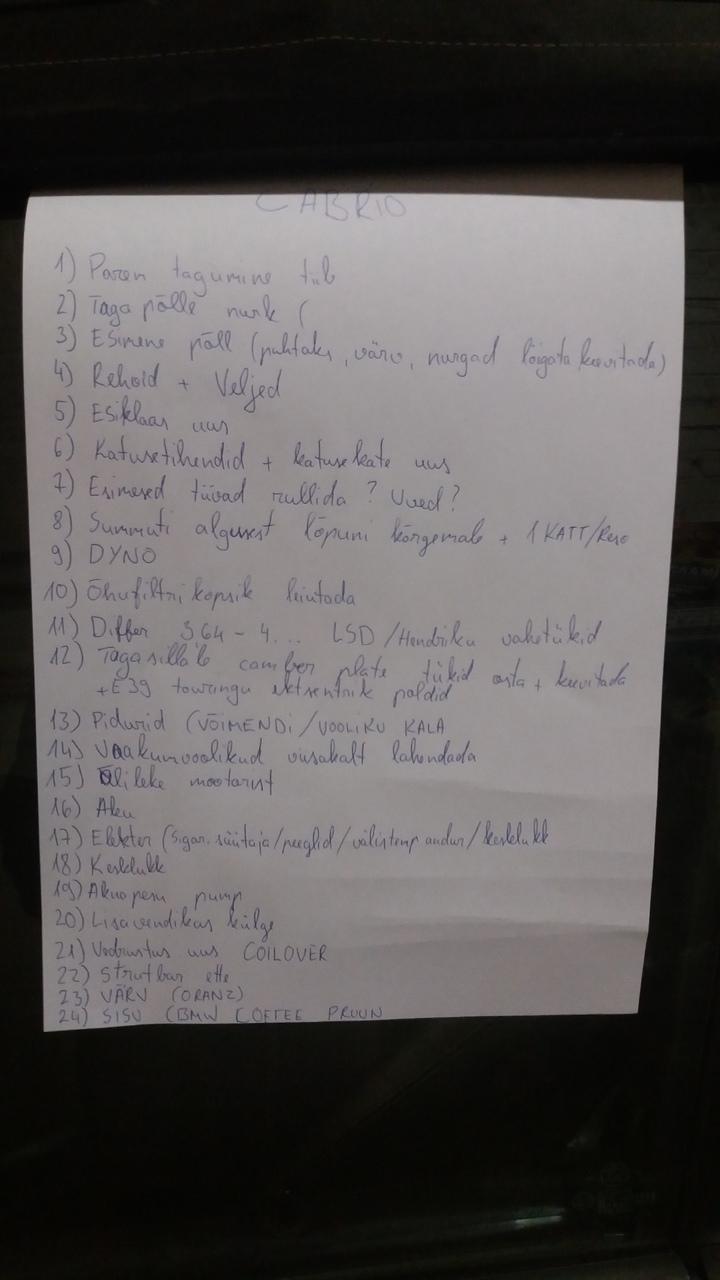 CABRIO
1) Parem tagumine tiib
2) Taga põlle nurk (
3) Esimene põll (puhtaks, värv, nurgad lõigata/keevitada)
4) Rehvid + Veljed
5) Esiklaas uus
6) Katusetihendid + katusekate uus
7) Esimesed tiivad rullida? Uued?
8) Summuti algusest lõpuni kõrgemale + 1 KATT/Reso
9) DYNO
10) Õhufiltri kopsik leiutada
11) Differ 3.64 - 4... LSD/Hendriku vahetükid
12) Tagasilla'le camber plate tükid osta + keevitada
+E39 touringu ektsentrik poldid
13) Pidurid (VÕIMENDI/VOOLIKU KALA
14) Vaakumvoolikud viisakalt lahendada
15) Õlileke mootorist
16) Aku
17) Elekter (Sigar. süütaja/peeglid/välistemp andur/kesklukk
18) Kesklukk
19) Aknapesu pump
20) Lisavendikas külge
21) Vedrustus uus COILOVER
22) Strutbar ette
23) VÄRV (ORANZ)
24) SISU (BMW COFFEE PRUUN